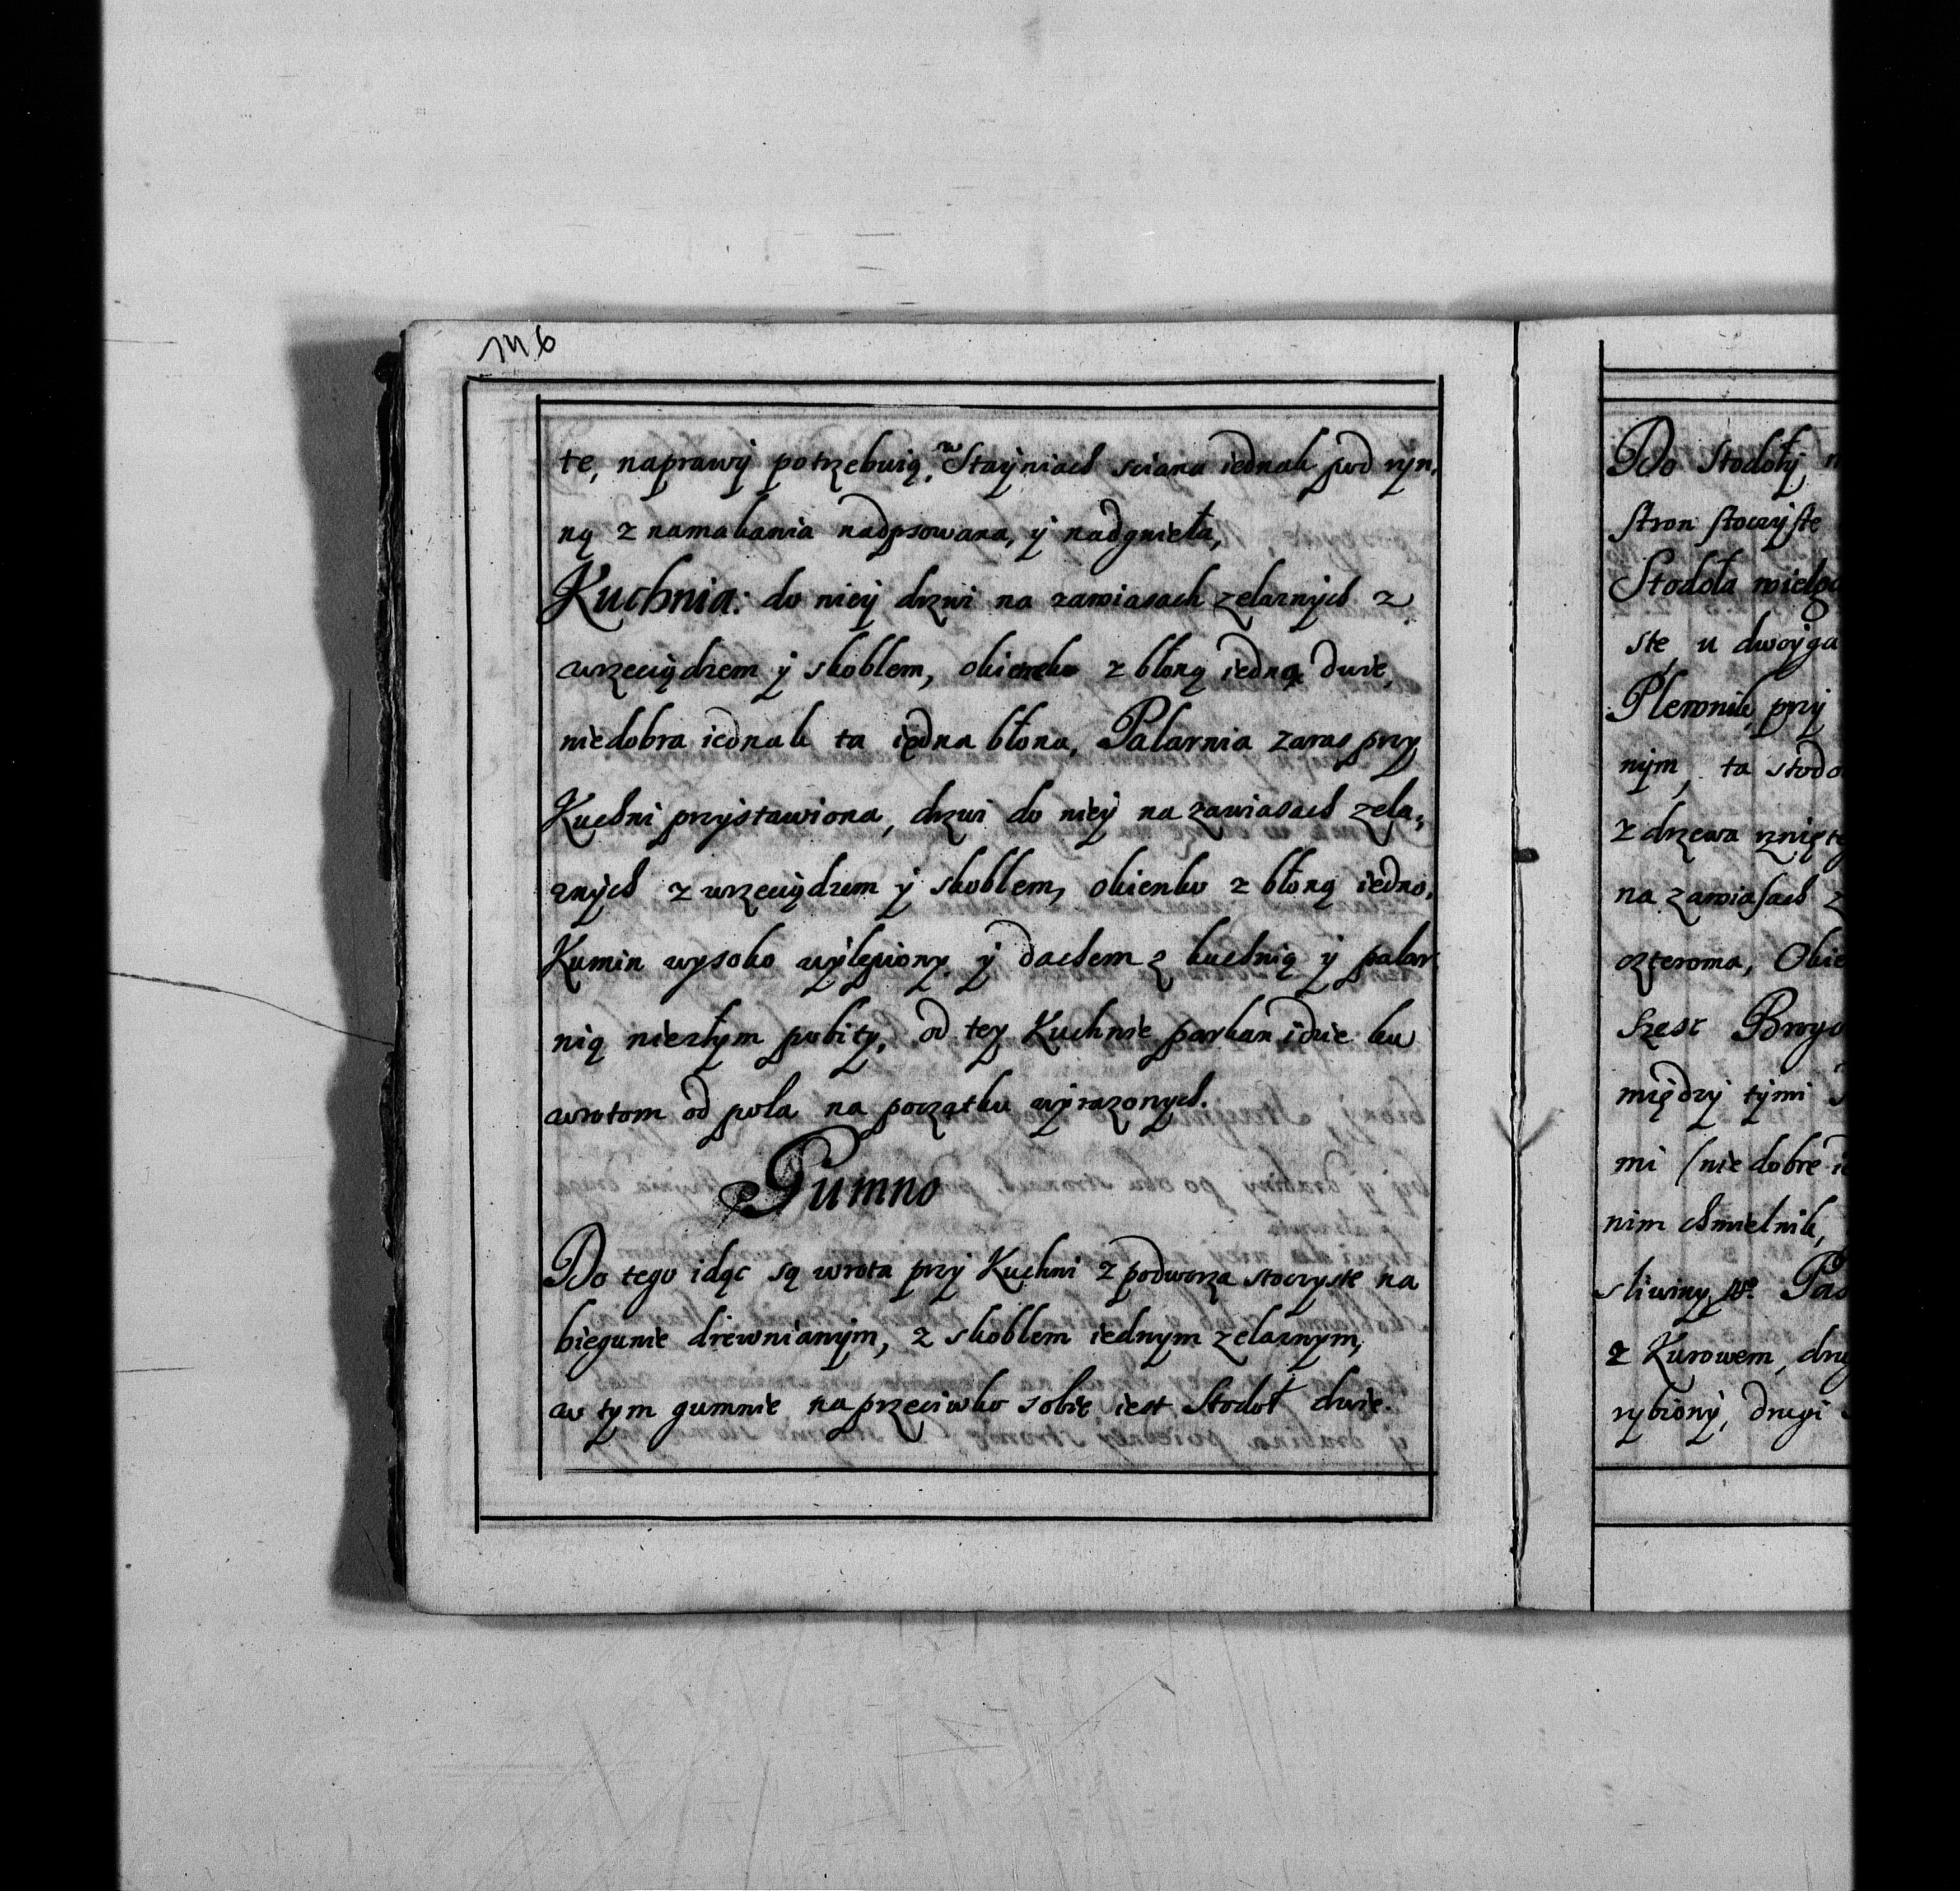 146
te, naprawy potrzebuią, w Stayniach sciana iednak pod ryn,
ną z namakania nadpsowana, y nadgnieła,
Kuchnia: do niey drzwi na zawiasach zelaznych z
wrzeciądzem y skoblem, okienko z błoną iedną duże,
niedobra iednak ta iedna błona, Palarnia zaras przy
Kuchni przystawiona, drzwi do niey na zawiasach zela,
znych z wrzeciądzem y skoblem, okienko z błoną iedno,
Kumin wysoko wylepiony y dachem z kuchnią y palar
nią niezłym pobity, od tey Kuchnie parkan idzie ku
wrotom od pola na początku wyrazonych.
Gumno
Do tego idąc są wrota przy Kuchni z podworza stoczyste na
biegunie drewnianym, z skoblem iednym zelaznym,
w tym gumnie naprzeciwko sobie iest Stodoł dwie.
Do Stodoły
stron stoczyste
Stodoła
ste, u dwoyga
Plewnik przy
nym, ta
z drzewa
na zawiasach
czteroma,
Szesc
między tymi
mi (nie dobre
nim chmielnik,
sliwiny
z Kurowem,
rybiony, drugi